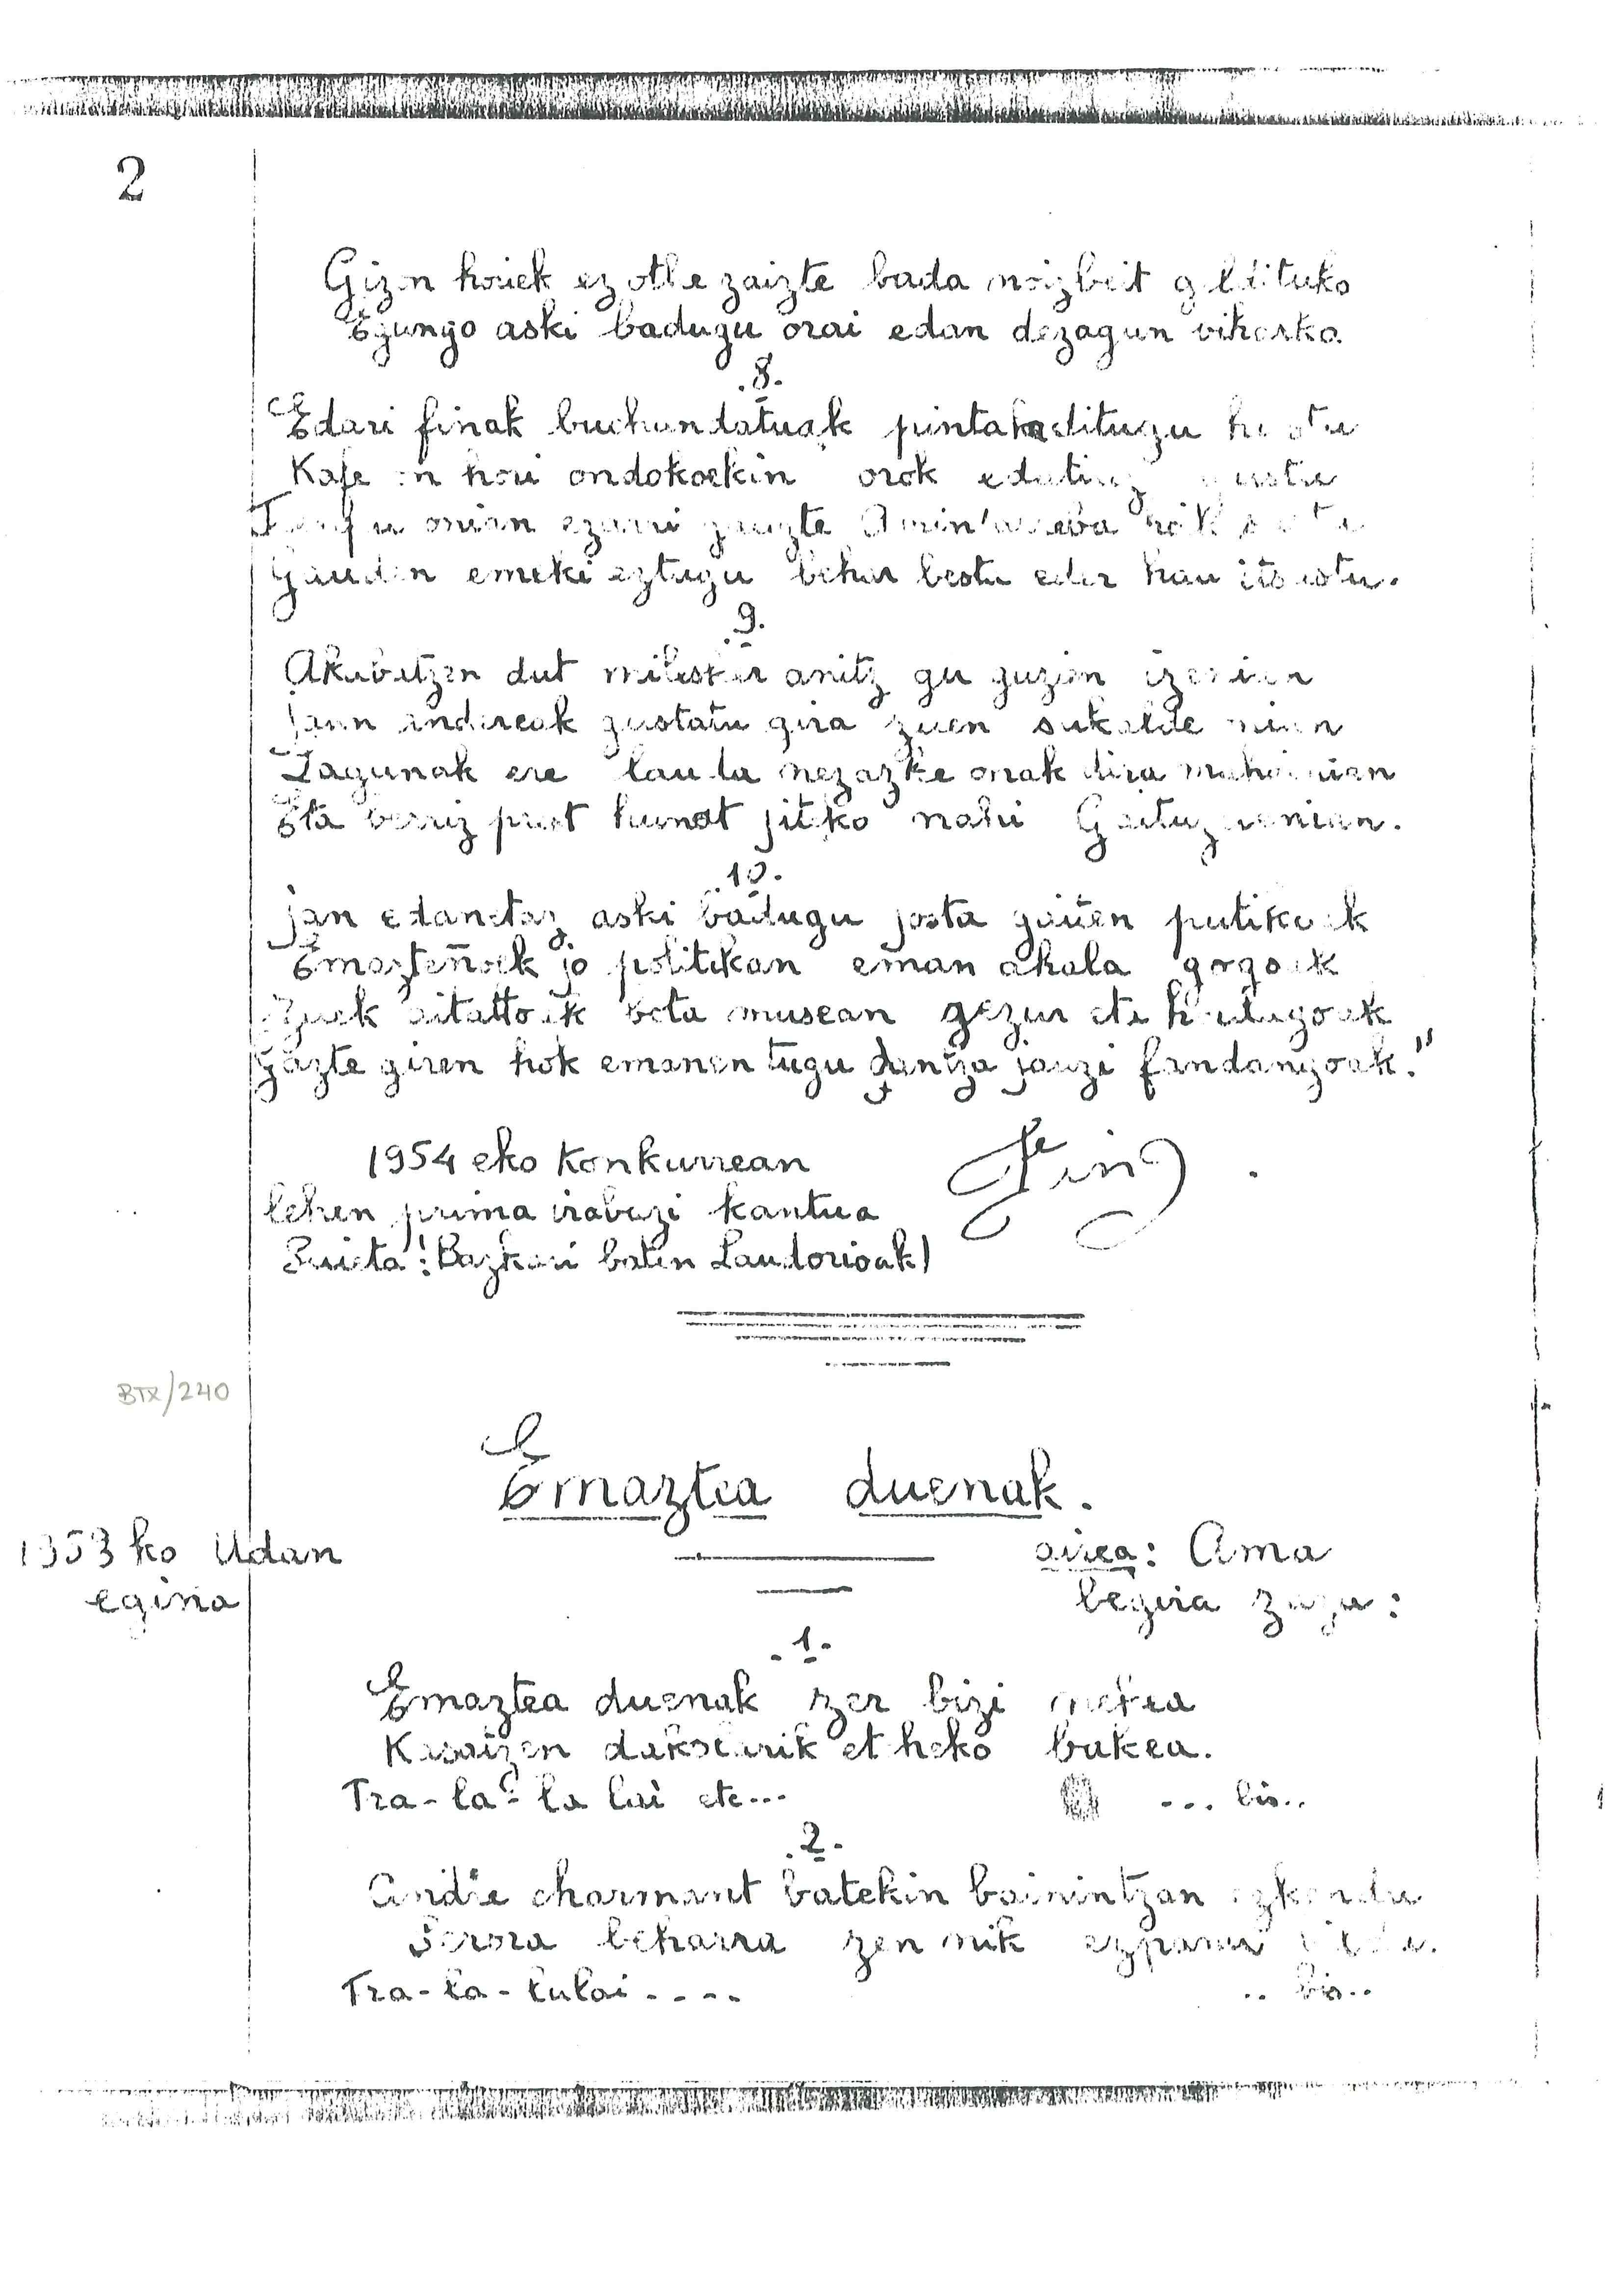 2
Gizon horiek ez othe zaizte bada noizbeit geldituko
Egungo aski badugu orai edan dezagun vihorka
.8.
Edari finak buchundatuak pintak ditugu
Kafe on hori ondokoekin orok edatiaz gustu
onian ezarri gauzte
Gauden emeki eztugu behar besta eder hau itsustu.
.9.
Akabatzen dut milesker anitz gu guzien izenian
jaun andereak gustatu gira zuen sukalde
Lagunak ere lauda nezazke onak dira mahainian
Eta berriz prest hunat jiteko nahi
.10.
jan edanetaz aski badugu josta gaiten
Emazteñoek jo politikan eman ahala gogoak
Zuek aitattoek bota musean gezur eta
Gazte giren hok emanen tugu dantza jauzi fandangoak."
1954 eko Konkurrean
lehen prima irabazi kantua
Suieta: Bazkari baten Laudorioak)
Fin
BTX/240
Emaztea duenak.
1953 ko Udan
egina
airea: Ama
begira zazu:
.1.
Emaztea duenak zer bizi nekea
Kasaizen dakotarik etheko bakea.
Tra-la-la lai etc...
... bis..
.2.
Andre charmant batekin bainintzan ezkondu
Serora beharra zen nik
Tra-la-lalai....
.. bis..